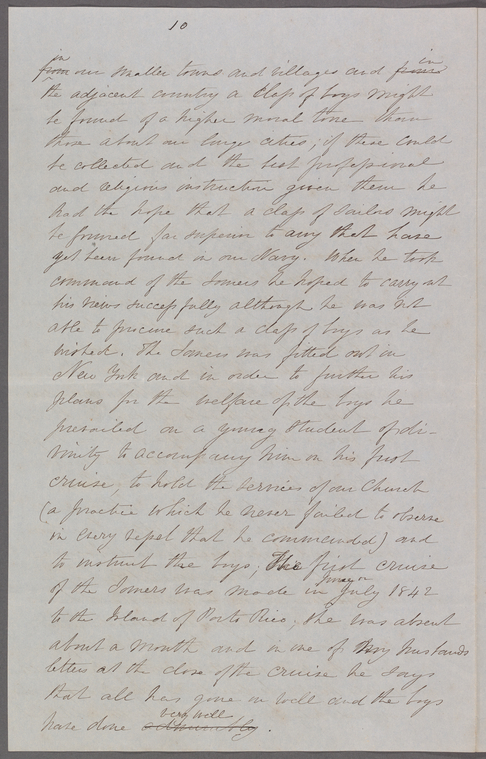 10
in in
from our smaller towns and villages and from
the adjacent country a class of boys might
be found of a higher moral tone than
those about our large cities; if these could
be collected and the best professional
and religious instruction given them he
had the hope that a class of sailors might
be formed far superior to any that have
yet been found in our Navy. When he took
command of the Somers he hoped to carry out
his views successfully although he was not
able to procure such a class of boys as he
wished. The Somers was fitted out in
New York and in order to further his
plans for the welfare of the boys he
prevailed on a young student of di-
vinity to accompany him on his first
cruise, to hold the services of our Church
(a practice which he never failed to observe
in every vessel that he commanded) and
to instruct the boys; The first cruise
of the Somers was made in July 1842
to the Island of Porto Rico; she was absent
about a month and in one of my husbands
letters at the close of the cruise he says
that all has gone on well and the boys
very well
have done admirably.